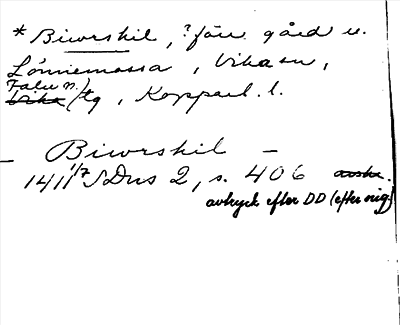 * Biwrskil, ? förr gård u.
Lönnemossa, Vika sn,
Falu n.
Vika /tg, Kopparb. l.
– Biwrskil –
1411 1/7 SDns 2, s. 406 avskr.
avtryck efter DD (efter orig)